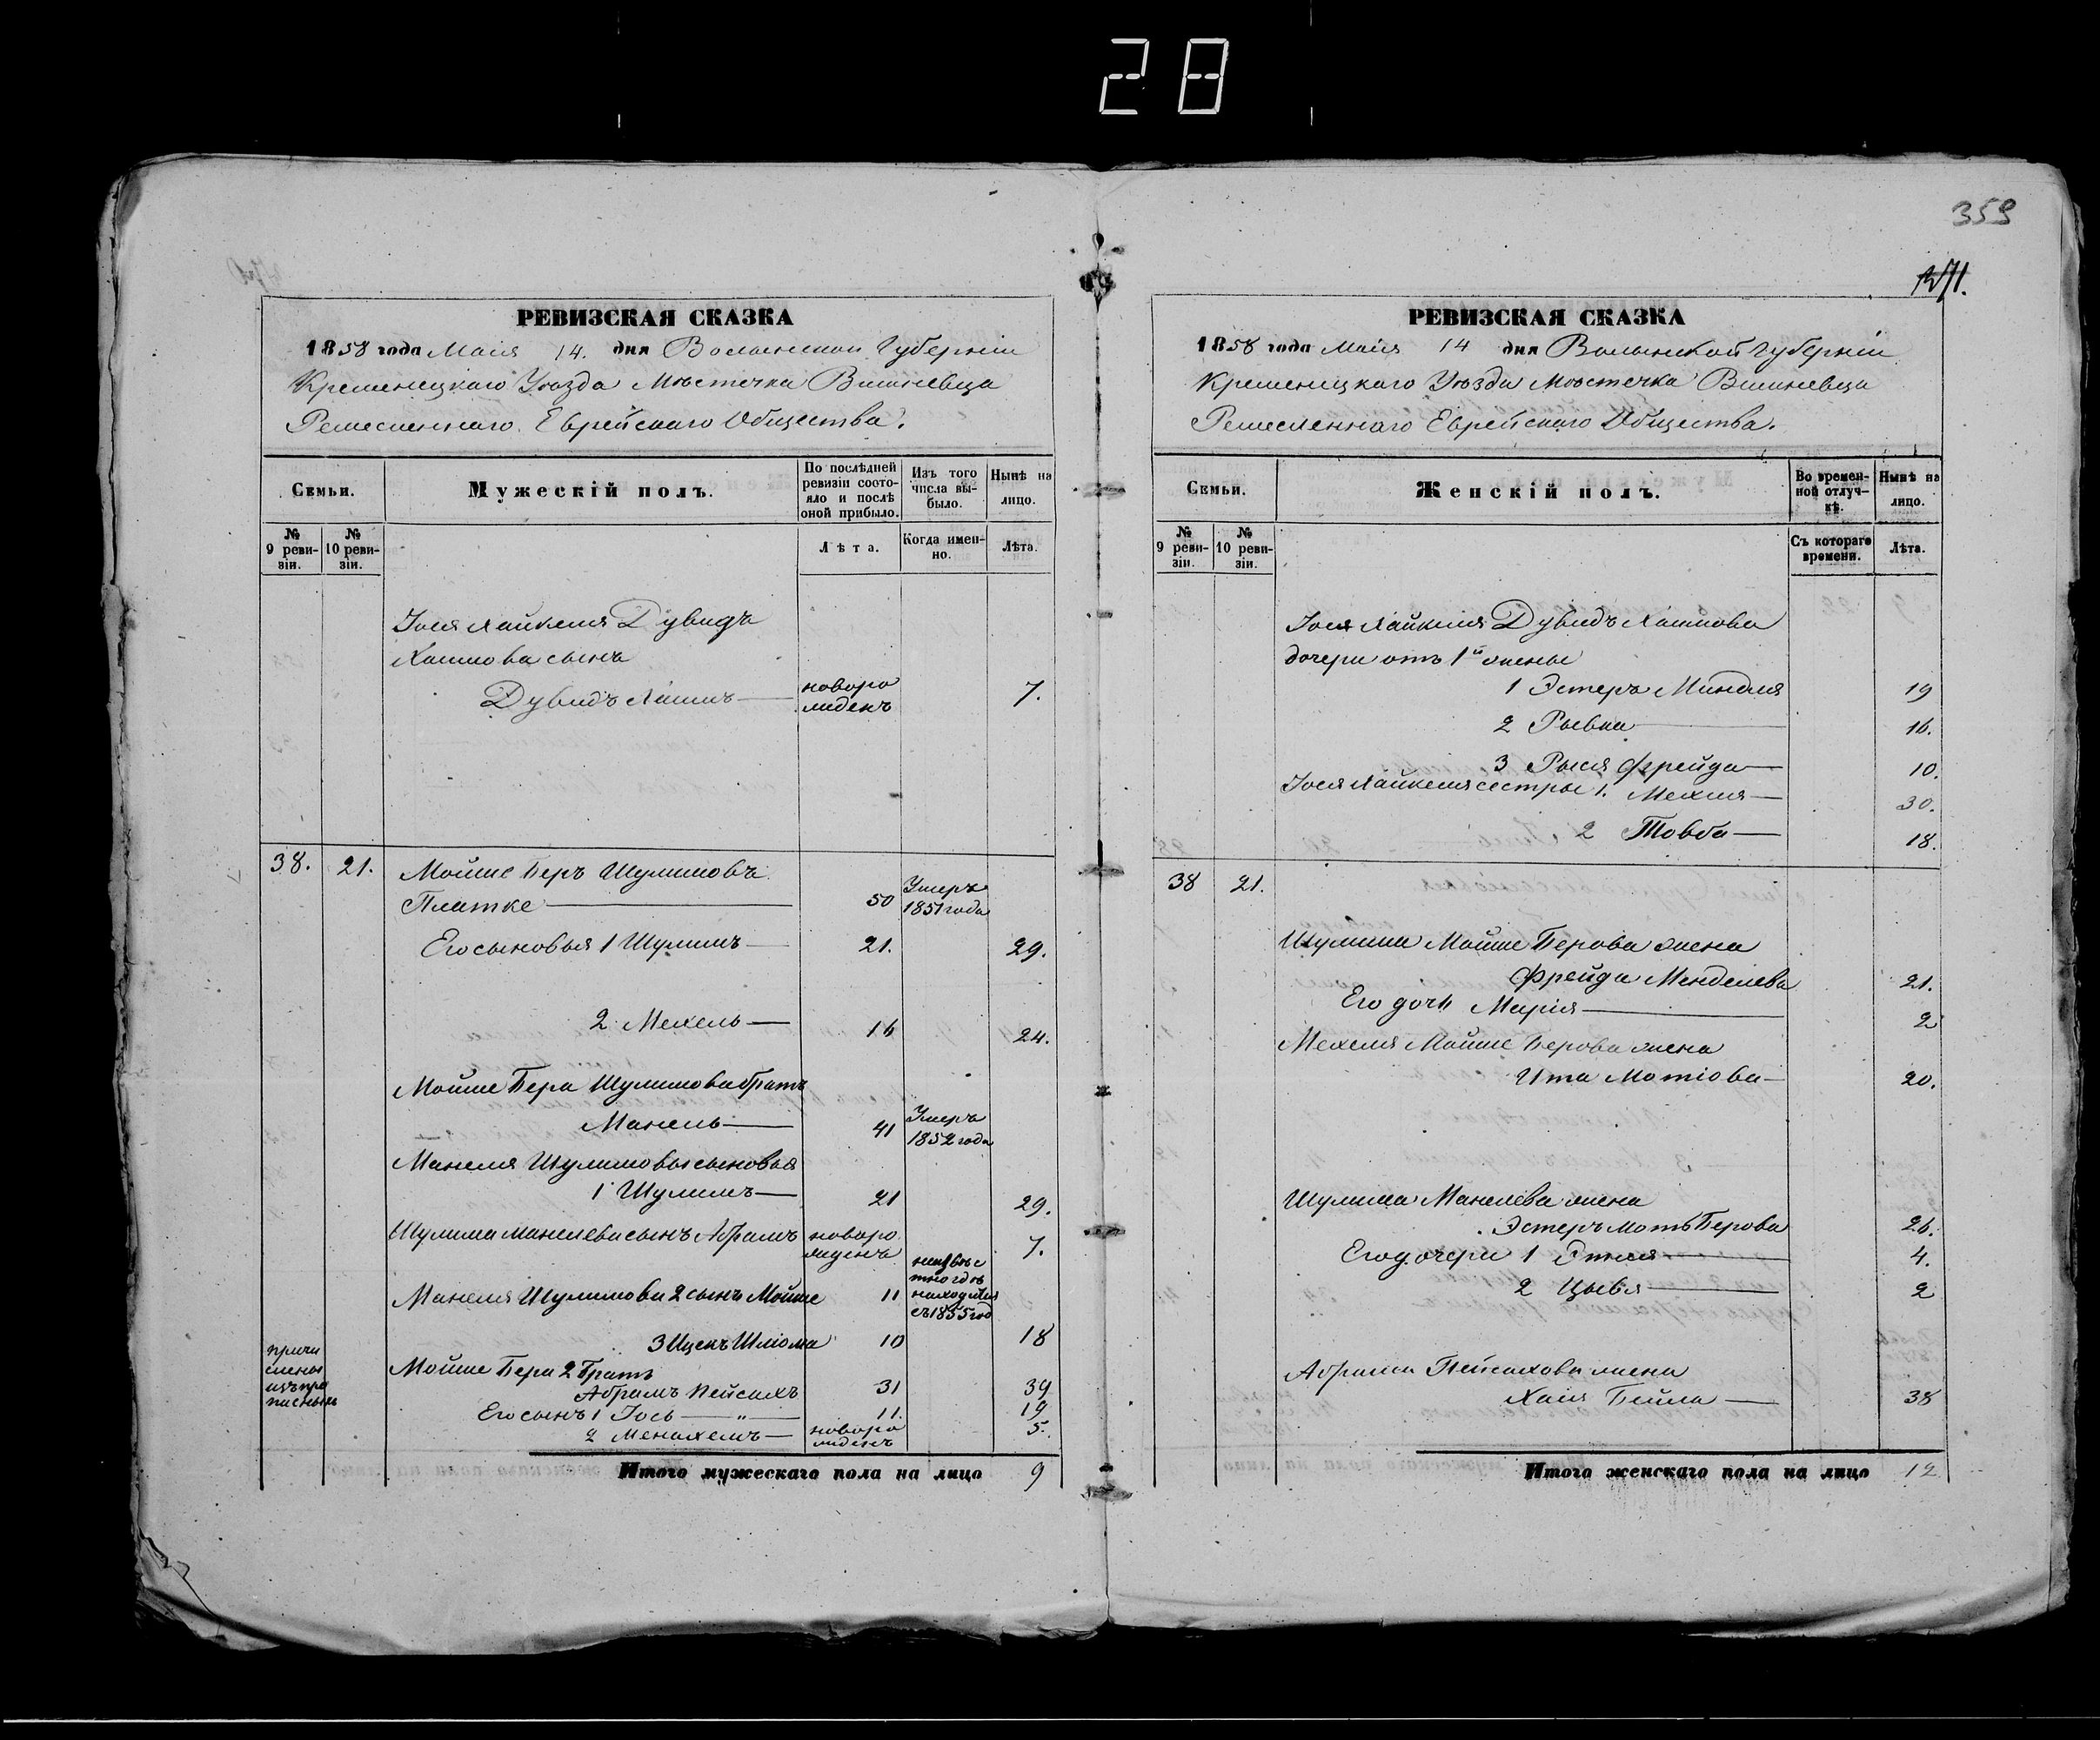 28
359
1271.
РЕВИЗСКАЯ СКАЗКА
1858 года Маія 14. дня Волынской Губерніи
Кременецкаго Уѣзда Мѣстечка Вишневца
Ремесленнаго Еврейскаго Общества.
Семьи.
Мужескій полъ.
По послѣдней ревизіи состояло и послѣ оной прибыло.
Изъ того числа выбыло.
Нынѣ на лицо.
№ 9 ревизіи.
№ 10 ревизіи.
Лѣта.
Когда именно.
Лѣта.
Іося Хайкеля Дувидъ
Хаимова сынъ
Дувидъ Хаимъ — новорожденъ 7.
38. 21. Мойше Беръ Шулимовъ
Платке — 50 Умеръ 1851 года
Его сыновья 1 Шулимъ — 21. 29.
2 Мехель — 16 24.
Мойше Бера Шулимова братъ
Манель — 41 Умеръ 1852 года
Манеля Шулимовы сыновья
1 Шулимъ — 21 29.
Шулима Манелева сынъ Абрамъ новорожденъ 7.
Манеля Шулимова 2 сынъ Мойше 11 неизвѣстно гдѣ находится съ 1855 год
3 Ицекъ Шлома 10 18
причислены изъ прописныхъ
Мойше Бера 2 братъ
Абрамъ Пейсахъ 31 39
Его сынъ 1 Іось — „ — 11. 19
2 Менахемъ — новорожденъ 5.
Итого мужескаго пола на лицо 9
РЕВИЗСКАЯ СКАЗКА
1858 года Маія 14 дня Волынской Губерніи
Кременецкаго Уѣзда Мѣстечка Вишневца
Ремесленнаго Еврейскаго Общества.
Семьи.
Женскій полъ.
Во временной отлучкѣ.
Нынѣ на лицо.
№ 9 ревизіи.
№ 10 ревизіи.
Съ котораго времени.
Лѣта.
Іося Хайкеля Дувидъ Хаимова
дочери отъ 1й жены
1 Эстеръ Миндля 19
2 Рывка — 16.
3 Рыся Фрейда — 10.
Іося Хайкеля сестры 1. Мехля — 30.
2 Товба — 18.
38 21.
Шулима Мойше Берова жена
Фрейда Менделева 21.
Его дочь Марія — 2
Мехеля Мойше Берова жена
Ита Мотіова — 20.
Шулима Манелева жена
Эстеръ Моть Берова 26.
Его дочери 1 Этля — 4.
2 Цывья — 2
Абрама Пейсахова жена
Хая Бейла — 38
Итого женскаго пола на лицо 12